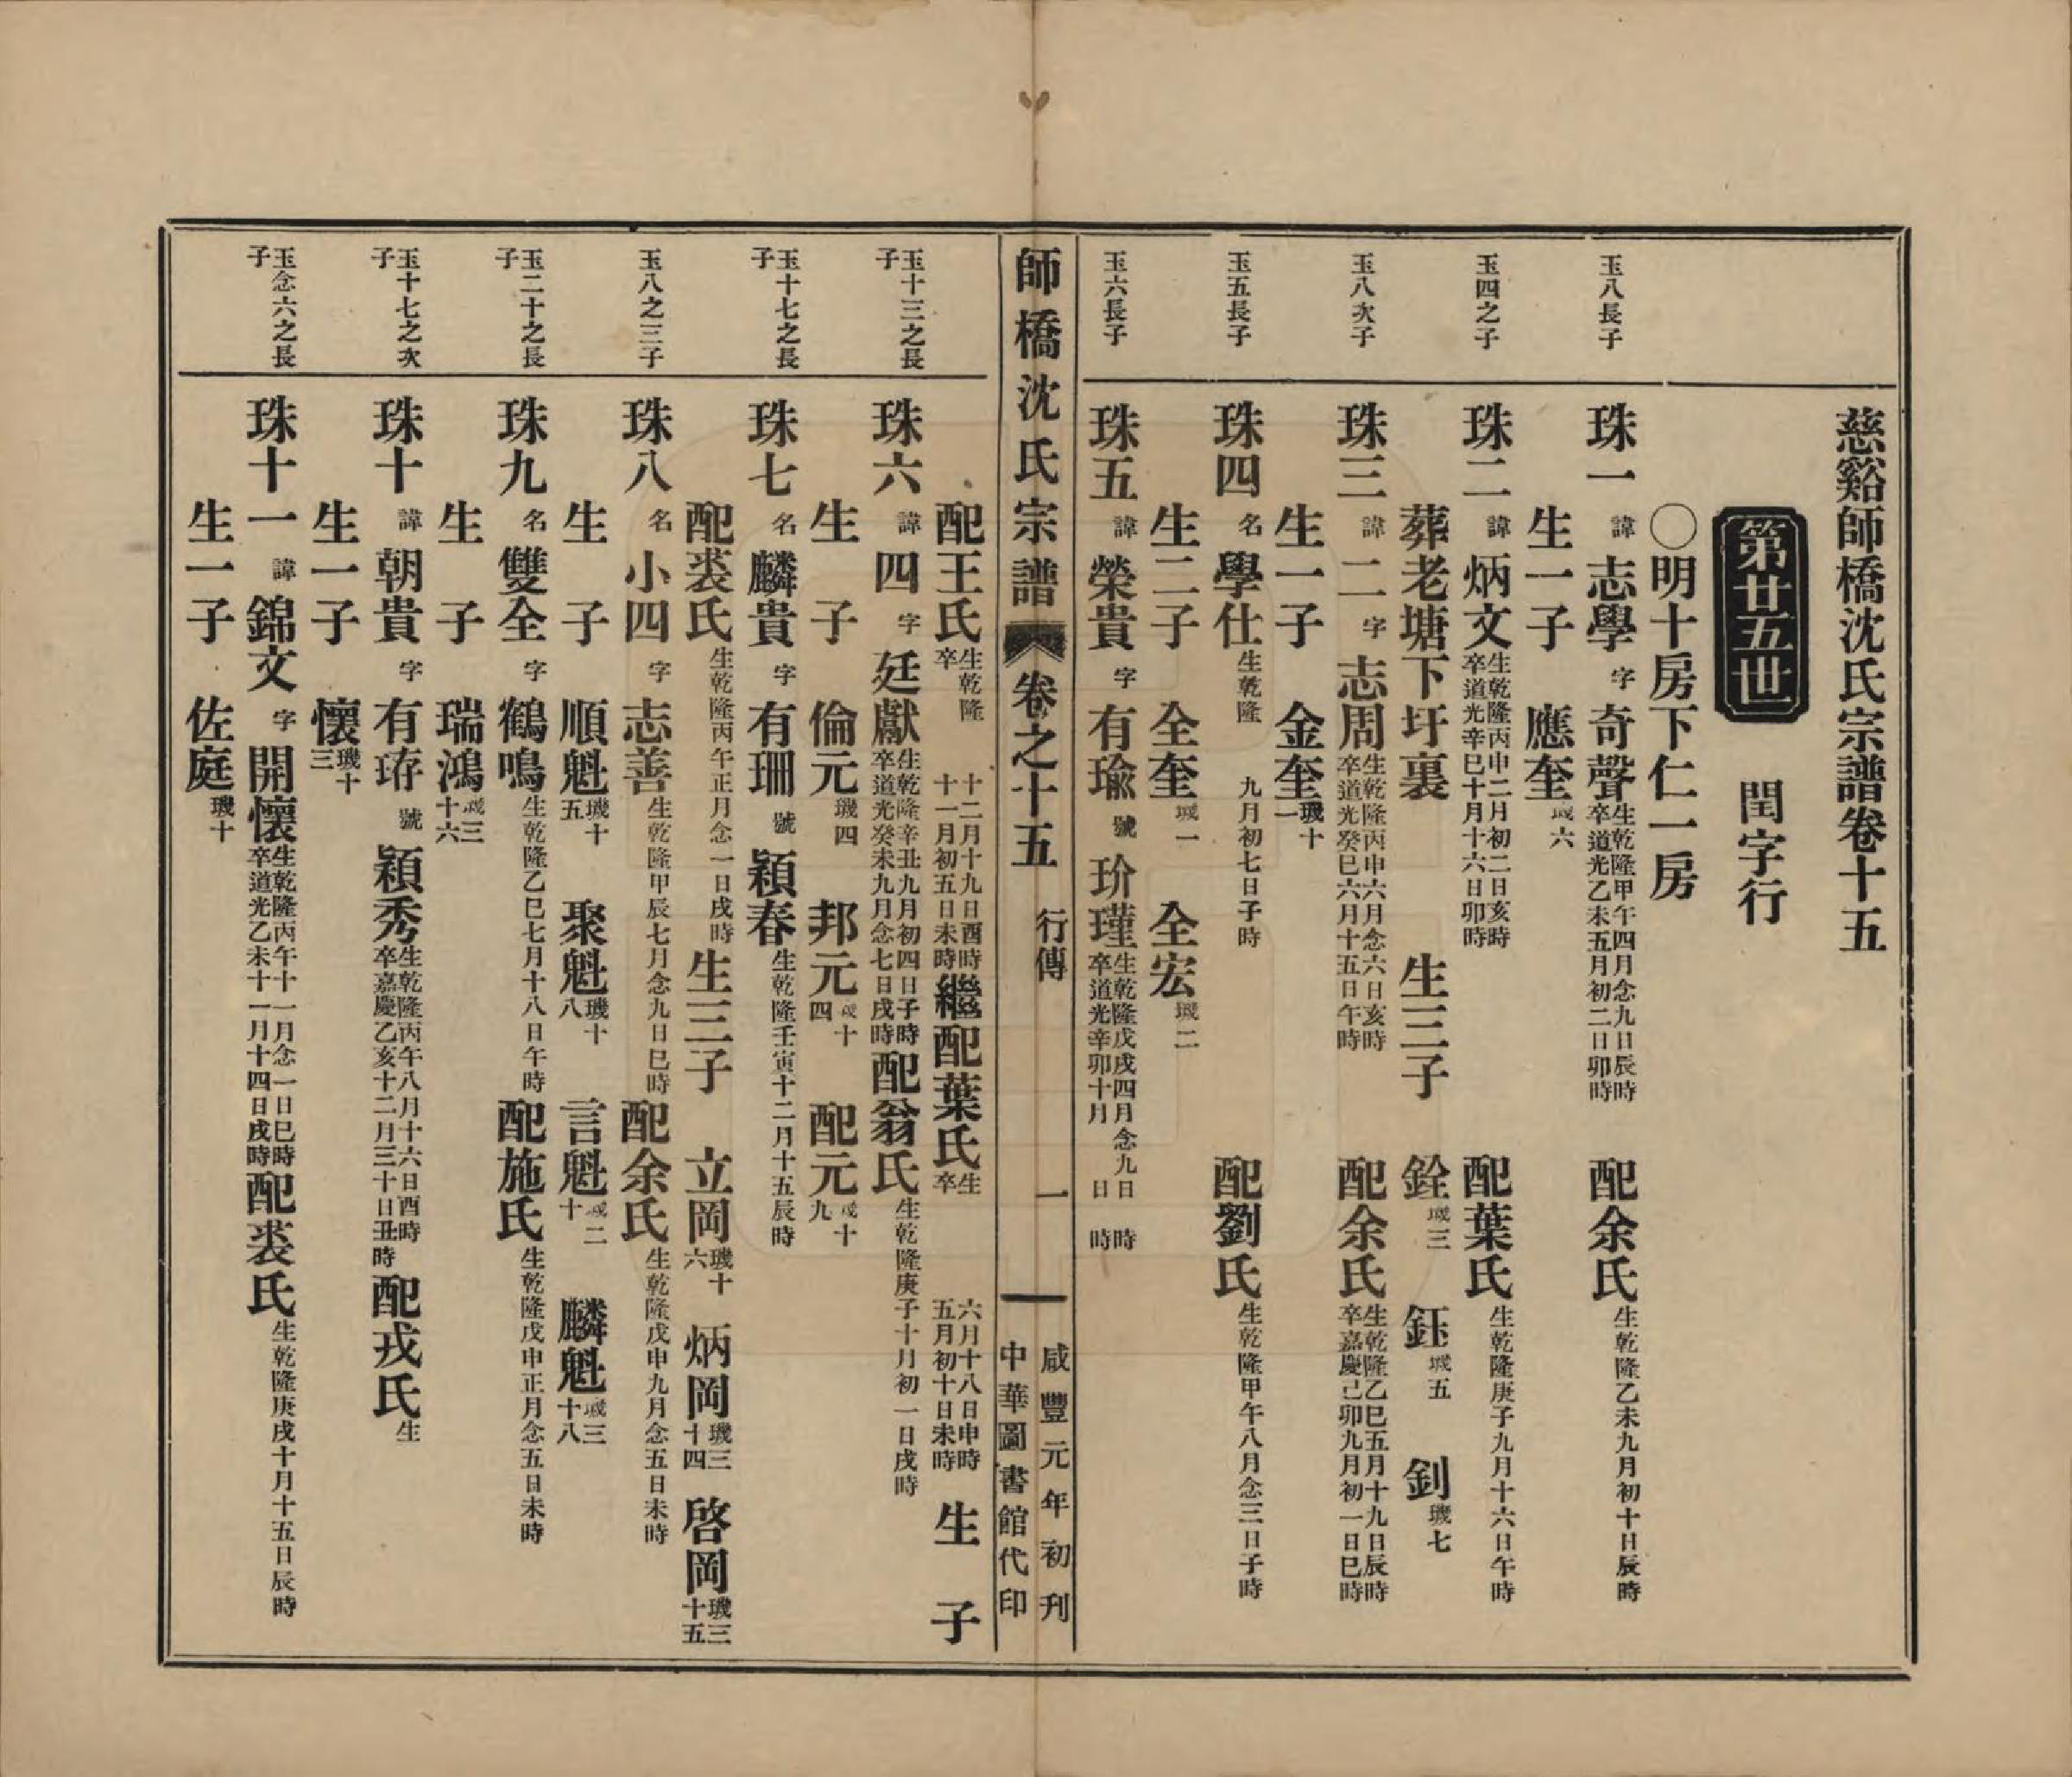 慈谿師橋沈氏宗譜卷十五
第廿五世 閏字行
〇明十房下仁一房
玉八長子 珠一 諱志學 字奇聲 生乾隆甲午四月念九日辰時 卒道光乙未五月初二日卯時 配余氏 生乾隆乙未九月初十日辰時
生一子 應奎 璣六
玉四之子 珠二 諱炳文 生乾隆丙申二月初二日亥時 卒道光辛巳十月十六日卯時 配葉氏 生乾隆庚子九月十六日午時
葬老塘下圩裏 生三子 銓 璣三 鈺 璣五 釗 璣七
玉八次子 珠三 諱二 字志周 生乾隆丙申六月念六日亥時 卒道光癸巳六月十五日午時 配余氏 生乾隆乙巳五月十九日辰時 卒嘉慶己卯九月初一日巳時
生一子 金奎 璣十一
玉五長子 珠四 名學仕 生乾隆 九月初七日子時 配劉氏 生乾隆甲午八月念三日子時
生二子 全奎 璣一 全宏 璣二
玉六長子 珠五 諱榮貴 字有瑜 號玠瑾 生乾隆戊戌四月念九日 時 卒道光辛卯十月 日 時
師橋沈氏宗譜 卷之十五 行傳 一 咸豐元年初刊 中華圖書館代印
配王氏 生乾隆 十二月十九日酉時 卒 十一月初五日未時 繼配葉氏 生 六月十八日申時 卒 五月初十日未時 生 子
玉十三之長子 珠六 諱四 字廷獻 生乾隆辛丑九月初四日子時 卒道光癸未九月念七日戌時 配翁氏 生乾隆庚子十月初一日戌時
生 子 倫元 璣四 邦元 璣十四 配元 璣十九
玉十七之長子 珠七 名麟貴 字有珊 號穎春 生乾隆壬寅十二月十五辰時
配裘氏 生乾隆丙午正月念一日戌時 生三子 立岡 璣十六 炳岡 璣三十四 啓岡 璣三十五
玉八之三子 珠八 名小四 字志善 生乾隆甲辰七月念九日巳時 配余氏 生乾隆戊申九月念五日未時
生 子 順魁 璣十五 聚魁 璣十八 言魁 璣二十 麟魁 璣三十八
玉二十之長子 珠九 名雙全 字鶴鳴 生乾隆乙巳七月十八日午時 配施氏 生乾隆戊申正月念五日未時
生 子 瑞鴻 璣三十六
玉十七之次子 珠十 諱朝貴 字有珔 號穎秀 生乾隆丙午八月十六日酉時 卒嘉慶乙亥十二月三十日丑時 配戎氏 生
生一子 懷 璣十三
玉念六之長子 珠十一 諱錦文 字開懷 生乾隆丙午十一月念一日巳時 卒道光乙未十一月十四日戌時 配裘氏 生乾隆庚戌十月十五日辰時
生一子 佐庭 璣十